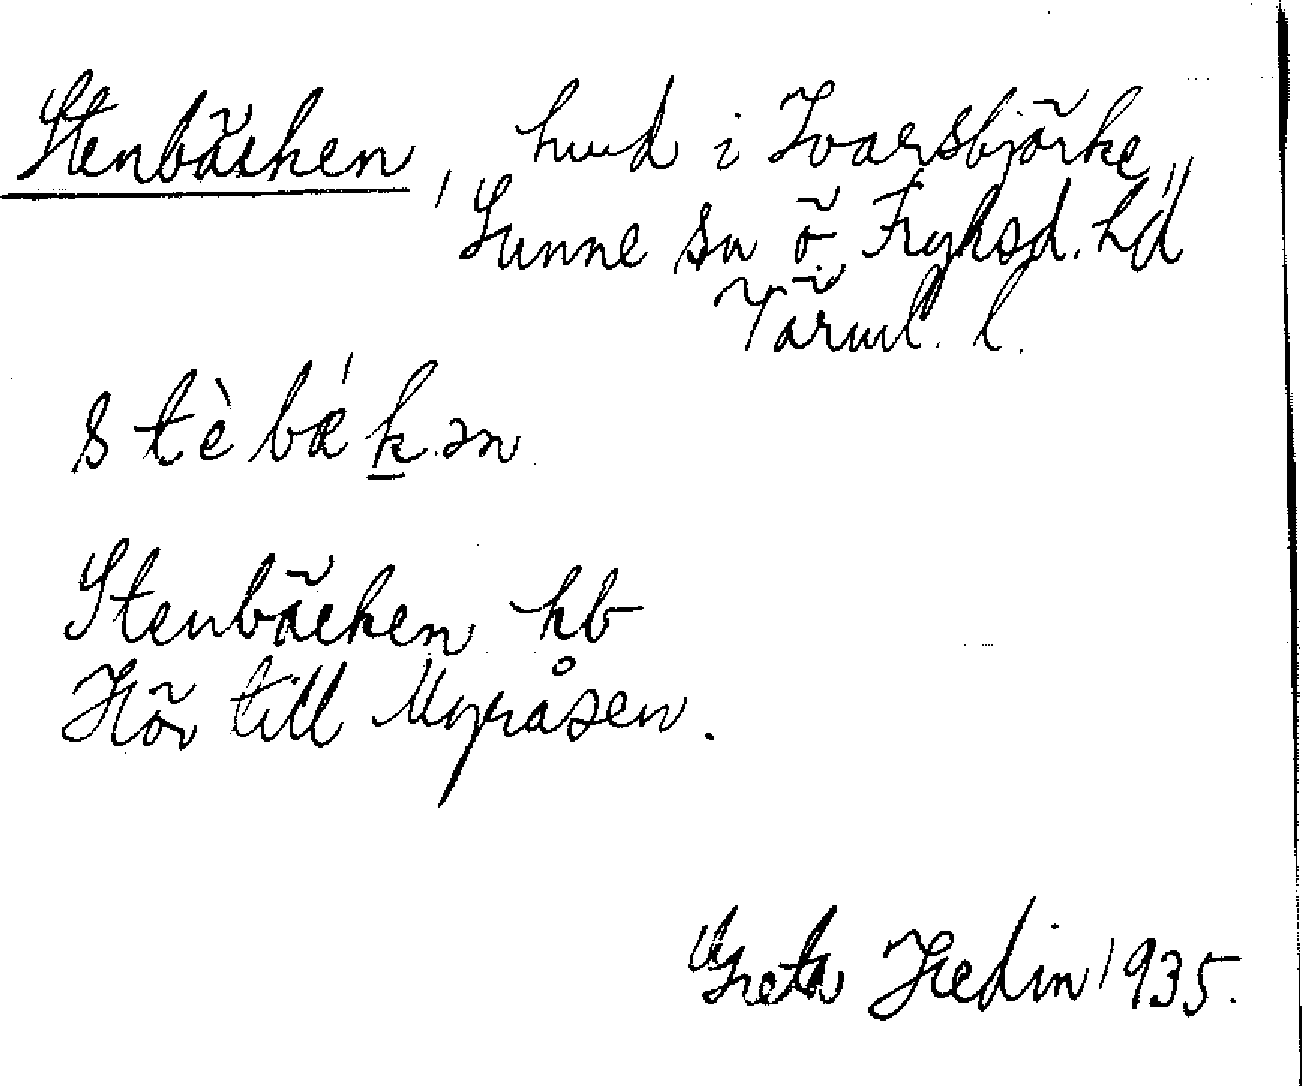 Stenbäcken, hmd i Ivarsbjörke,
Sunne sn ö. Fryksd. hd
Värml. l.
stè bǽk.ən
Stenbäcken hb
Hör till Myråsen.
Greta Hedin 1935.